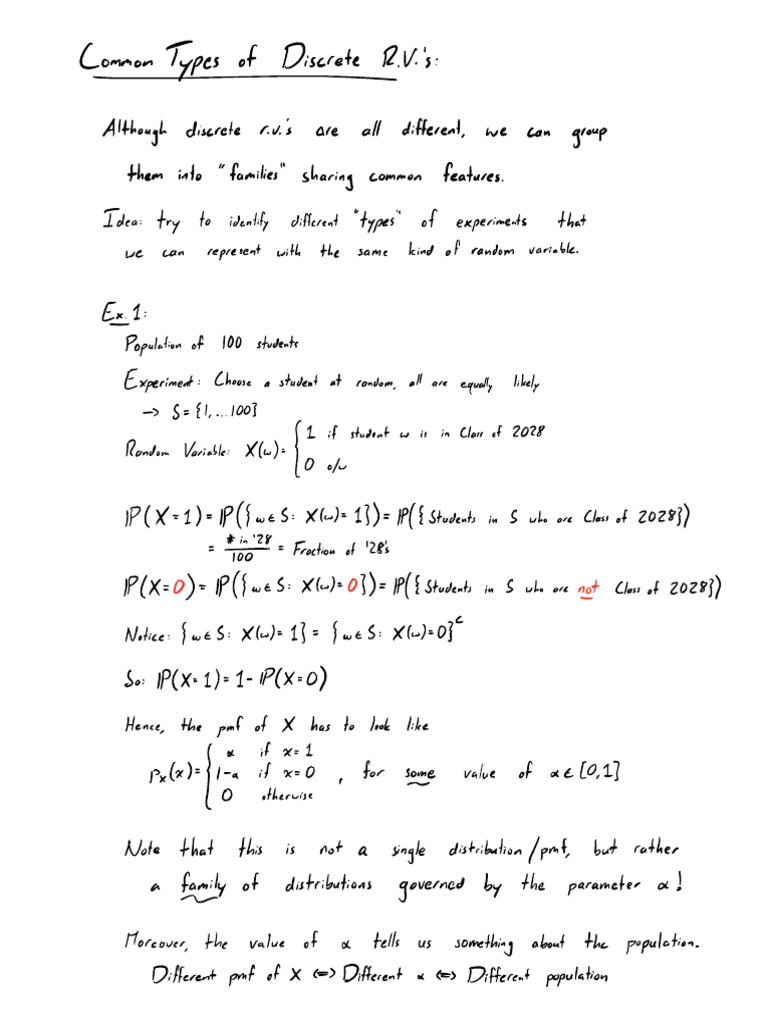 Common Types of Discrete R.V.'s:
Although discrete r.v.'s are all different, we can group
them into "families" sharing common features.
Idea: try to identify different "types" of experiments that
we can represent with the same kind of random variable.
Ex. 1:
Population of 100 students
Experiment: Choose a student at random, all are equally likely
→ S = {1, ... 100}
Random Variable: X(ω) = { 1 if student ω is in Class of 2028
0 o/w
ℙ(X=1) = ℙ({ω∈S: X(ω)=1}) = ℙ({Students in S who are Class of 2028})
= # in '28 / 100 = Fraction of '28's
ℙ(X=0) = ℙ({ω∈S: X(ω)=0}) = ℙ({Students in S who are not Class of 2028})
Notice: {ω∈S: X(ω)=1} = {ω∈S: X(ω)=0}ᶜ
So: ℙ(X=1) = 1 - ℙ(X=0)
Hence, the pmf of X has to look like
pₓ(x) = { α if x=1
1-α if x=0 , for some value of α∈[0,1]
0 otherwise
Note that this is not a single distribution/pmf, but rather
a family of distributions governed by the parameter α!
Moreover, the value of α tells us something about the population.
Different pmf of X ⟺ Different α ⟺ Different population